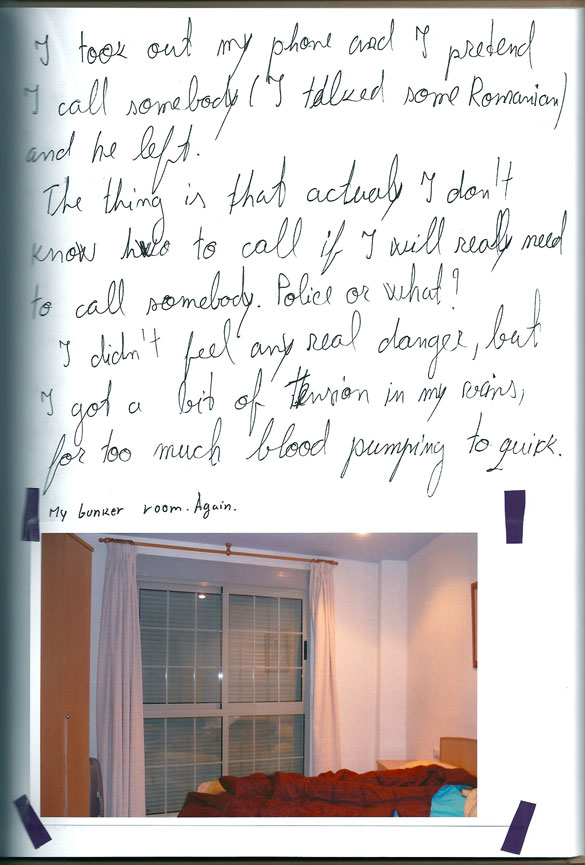 I took out my phone and I pretend
I call somebody (I talked some Romanian)
and he left.
The thing is that actualy I don't
know hwo to call if I will really need
to call somebody. Police or what?
I didn't feel any real danger, but
I got a bit of tension in my veins,
for too much blood pumping to quick.
My bunker room. Again.